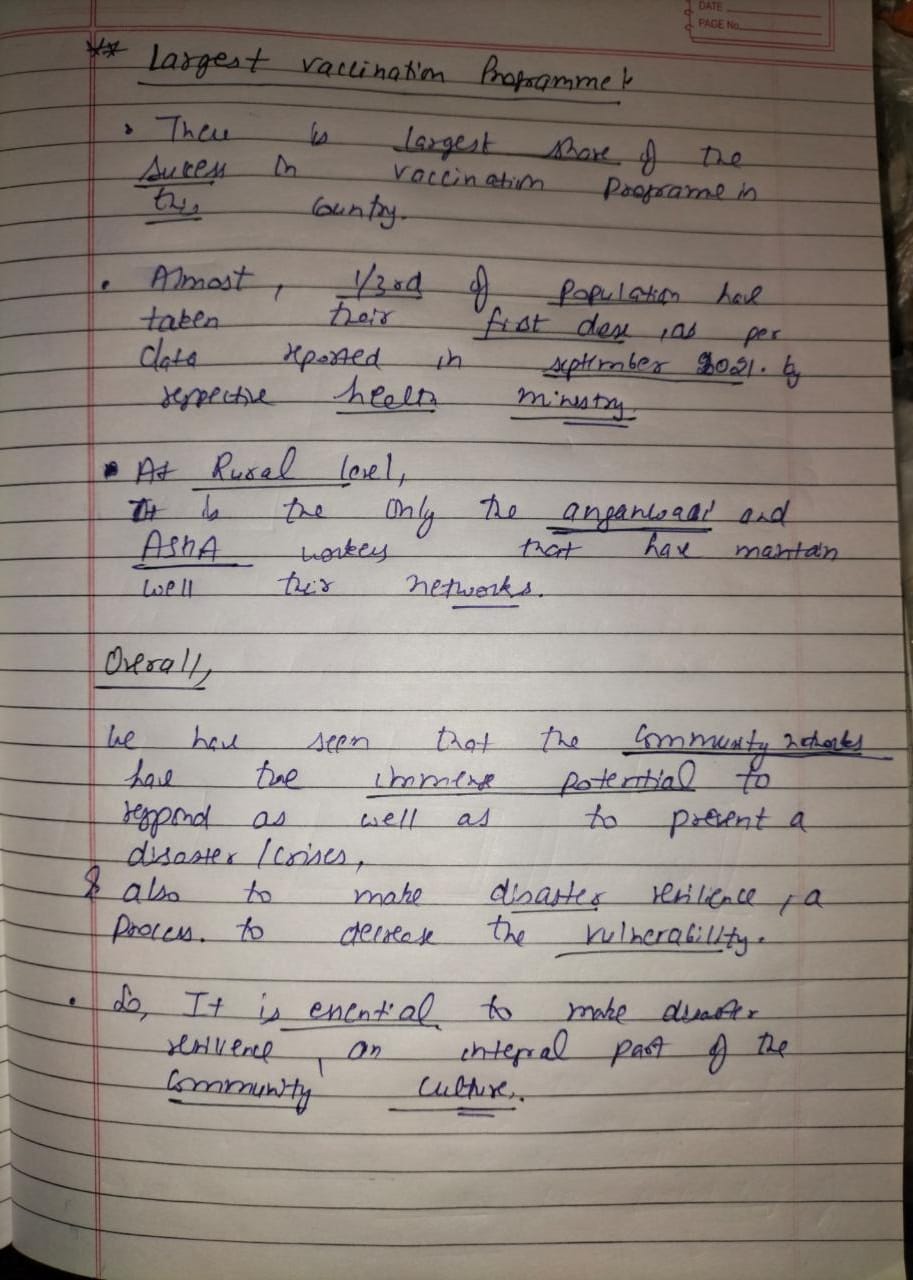 DATE
PAGE No.
** Largest vaccination Programme
• There is largest share of the
sucess in vaccination Programe in
this country.
• Almost, 1/3rd of Population have
taken their first dose, as per
data reported in september 2021. by
respective health ministry.
• At Rural level,
It is the only the anganwadi and
ASHA workers that have maintain
well their networks.
Overall,
We have seen that the Community networks
have the immense potential to
respond as well as to prevent a
disaster / Crises,
& also to make disaster resilience, a
Process. to decrease the vulnerability.
• So, It is essential to make disaster
resilience, an integral part of the
Community culture.